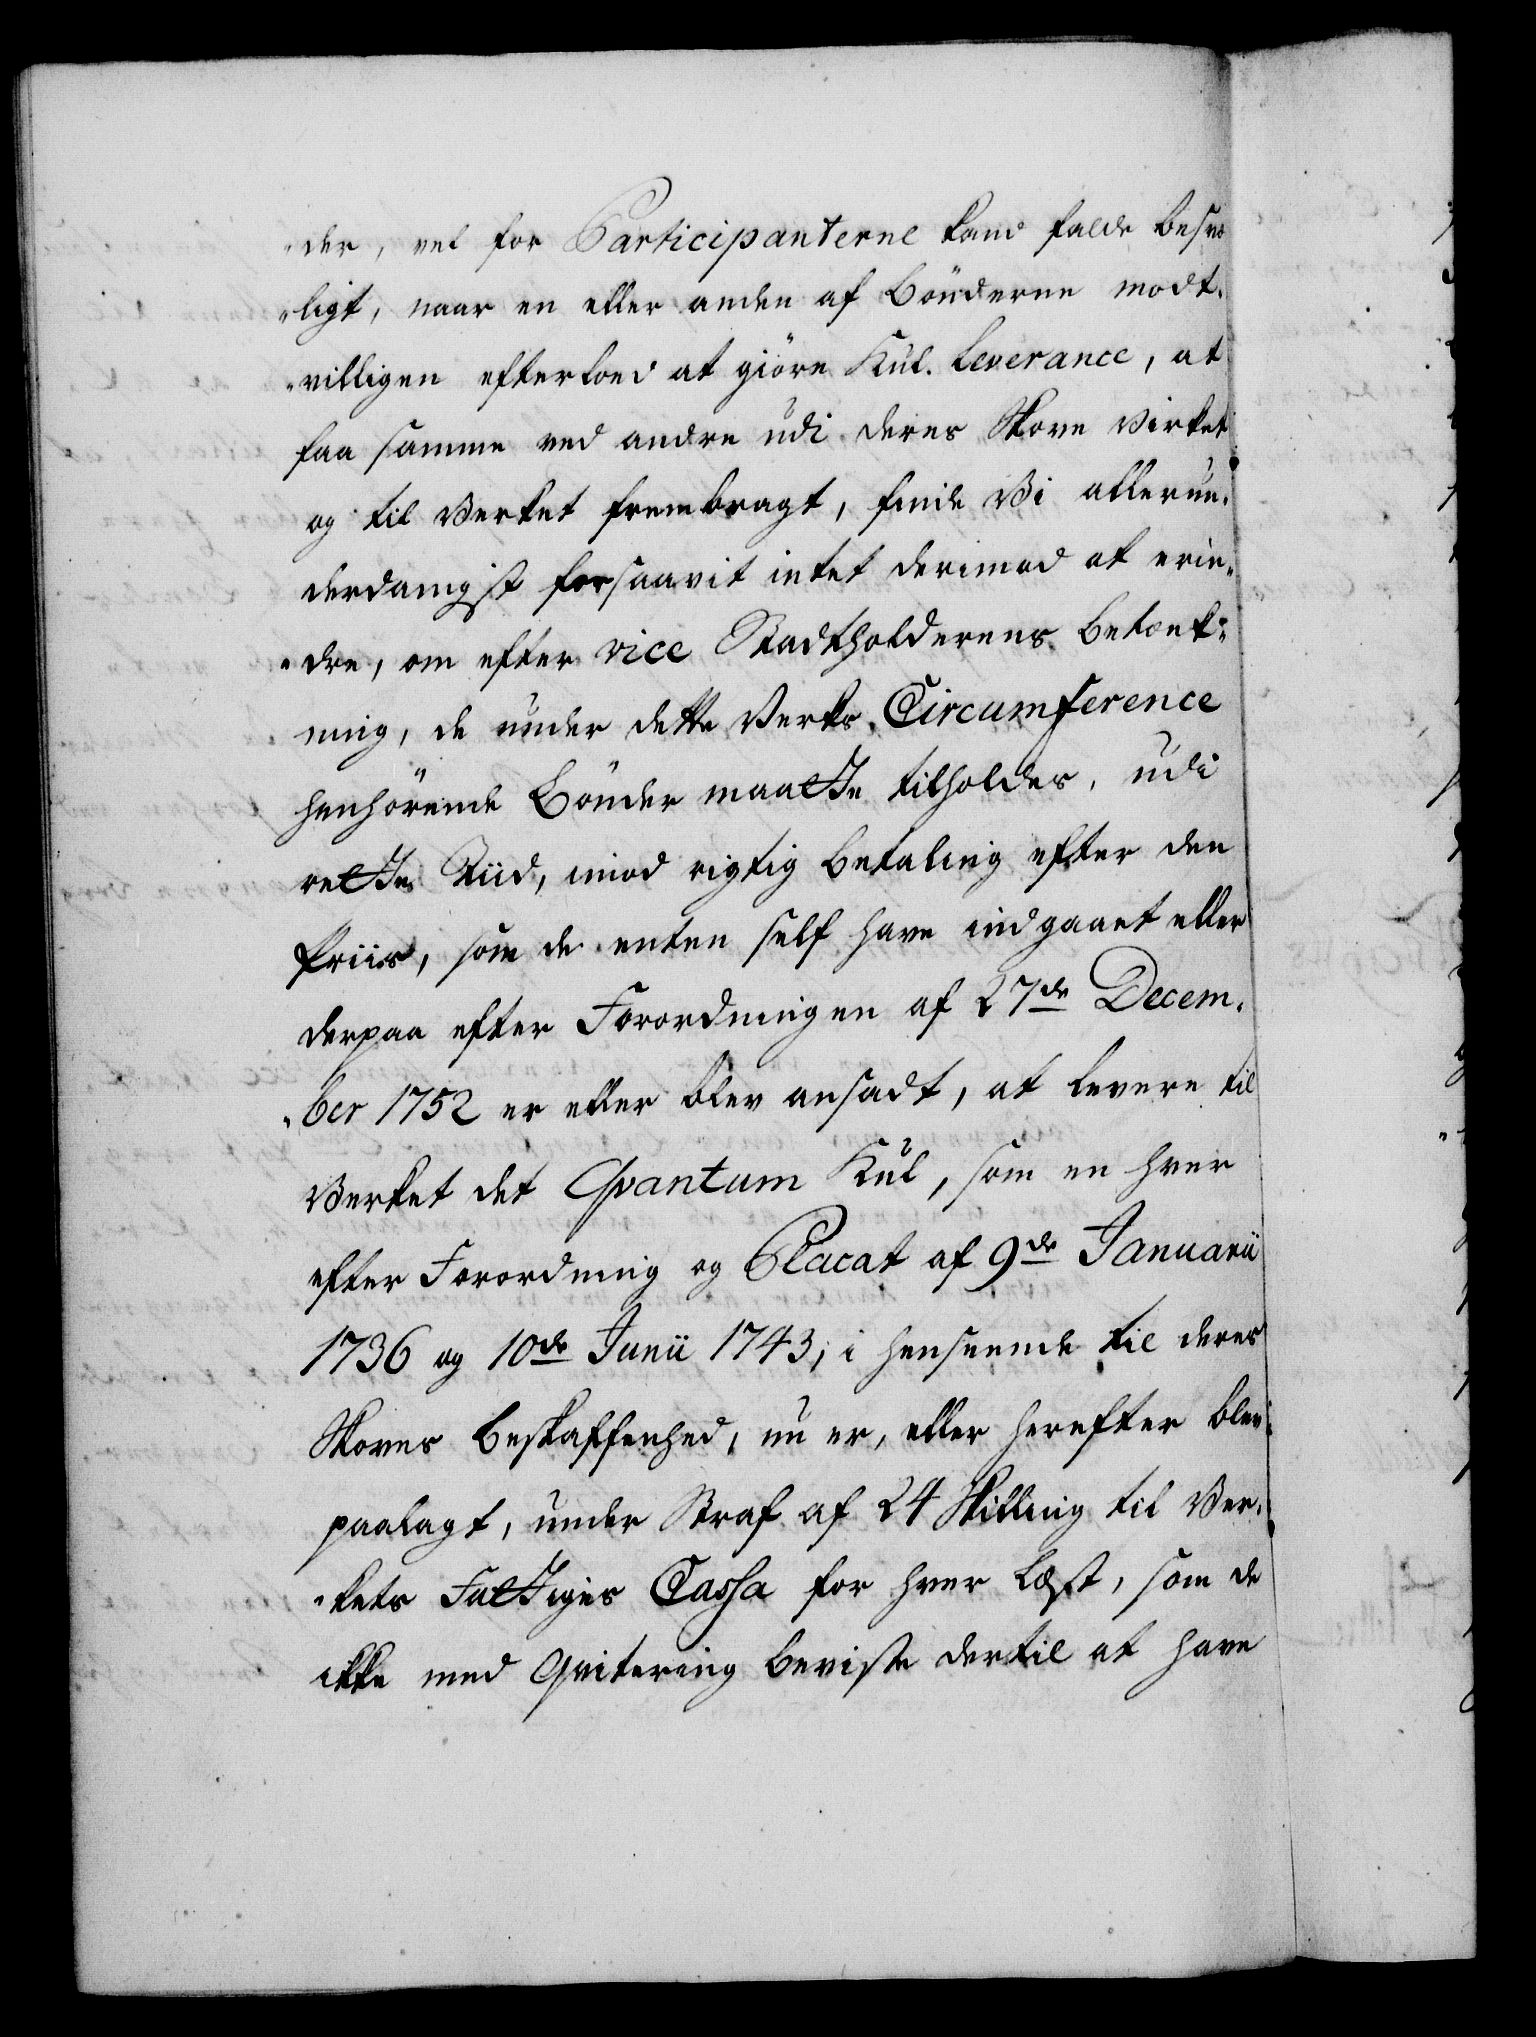 der, vel for Participanterne kand falde besvæ
ligt, naar en eller anden af Bönderne modt-
villigen efterloed at giöre Kul-Leverance, at
faa samme ved andre udi deres Skove virket
og til Verket frembragt, finde Vi allerun-
derdanigst forsaavit intet derimod at erin-
dre, om efter vice Stadtholderens Betænk-
ning, de under dette Verks Circumference
henhörende Bönder maatte tilholdes, udi
rette Tiid, imod rigtig betaling efter den
Priis, som de enten self have indgaaet eller
derpaa efter Forordningen af 27de Decem-
ber 1752 er eller blev ansadt, at levere til
Verket det Qvantum Kul, som en hver
efter Forordning og Placat af 9de Januarii
1736 og 10de Junii 1743, i henseende til deres
Skoves beskaffenhed, nu er, eller herefter blev
paalagt, under Straf af 24 Skilling til Ver-
kets Fattiges Cassa for hver Læst, som de
ikke med Qvitering beviste dertil at have